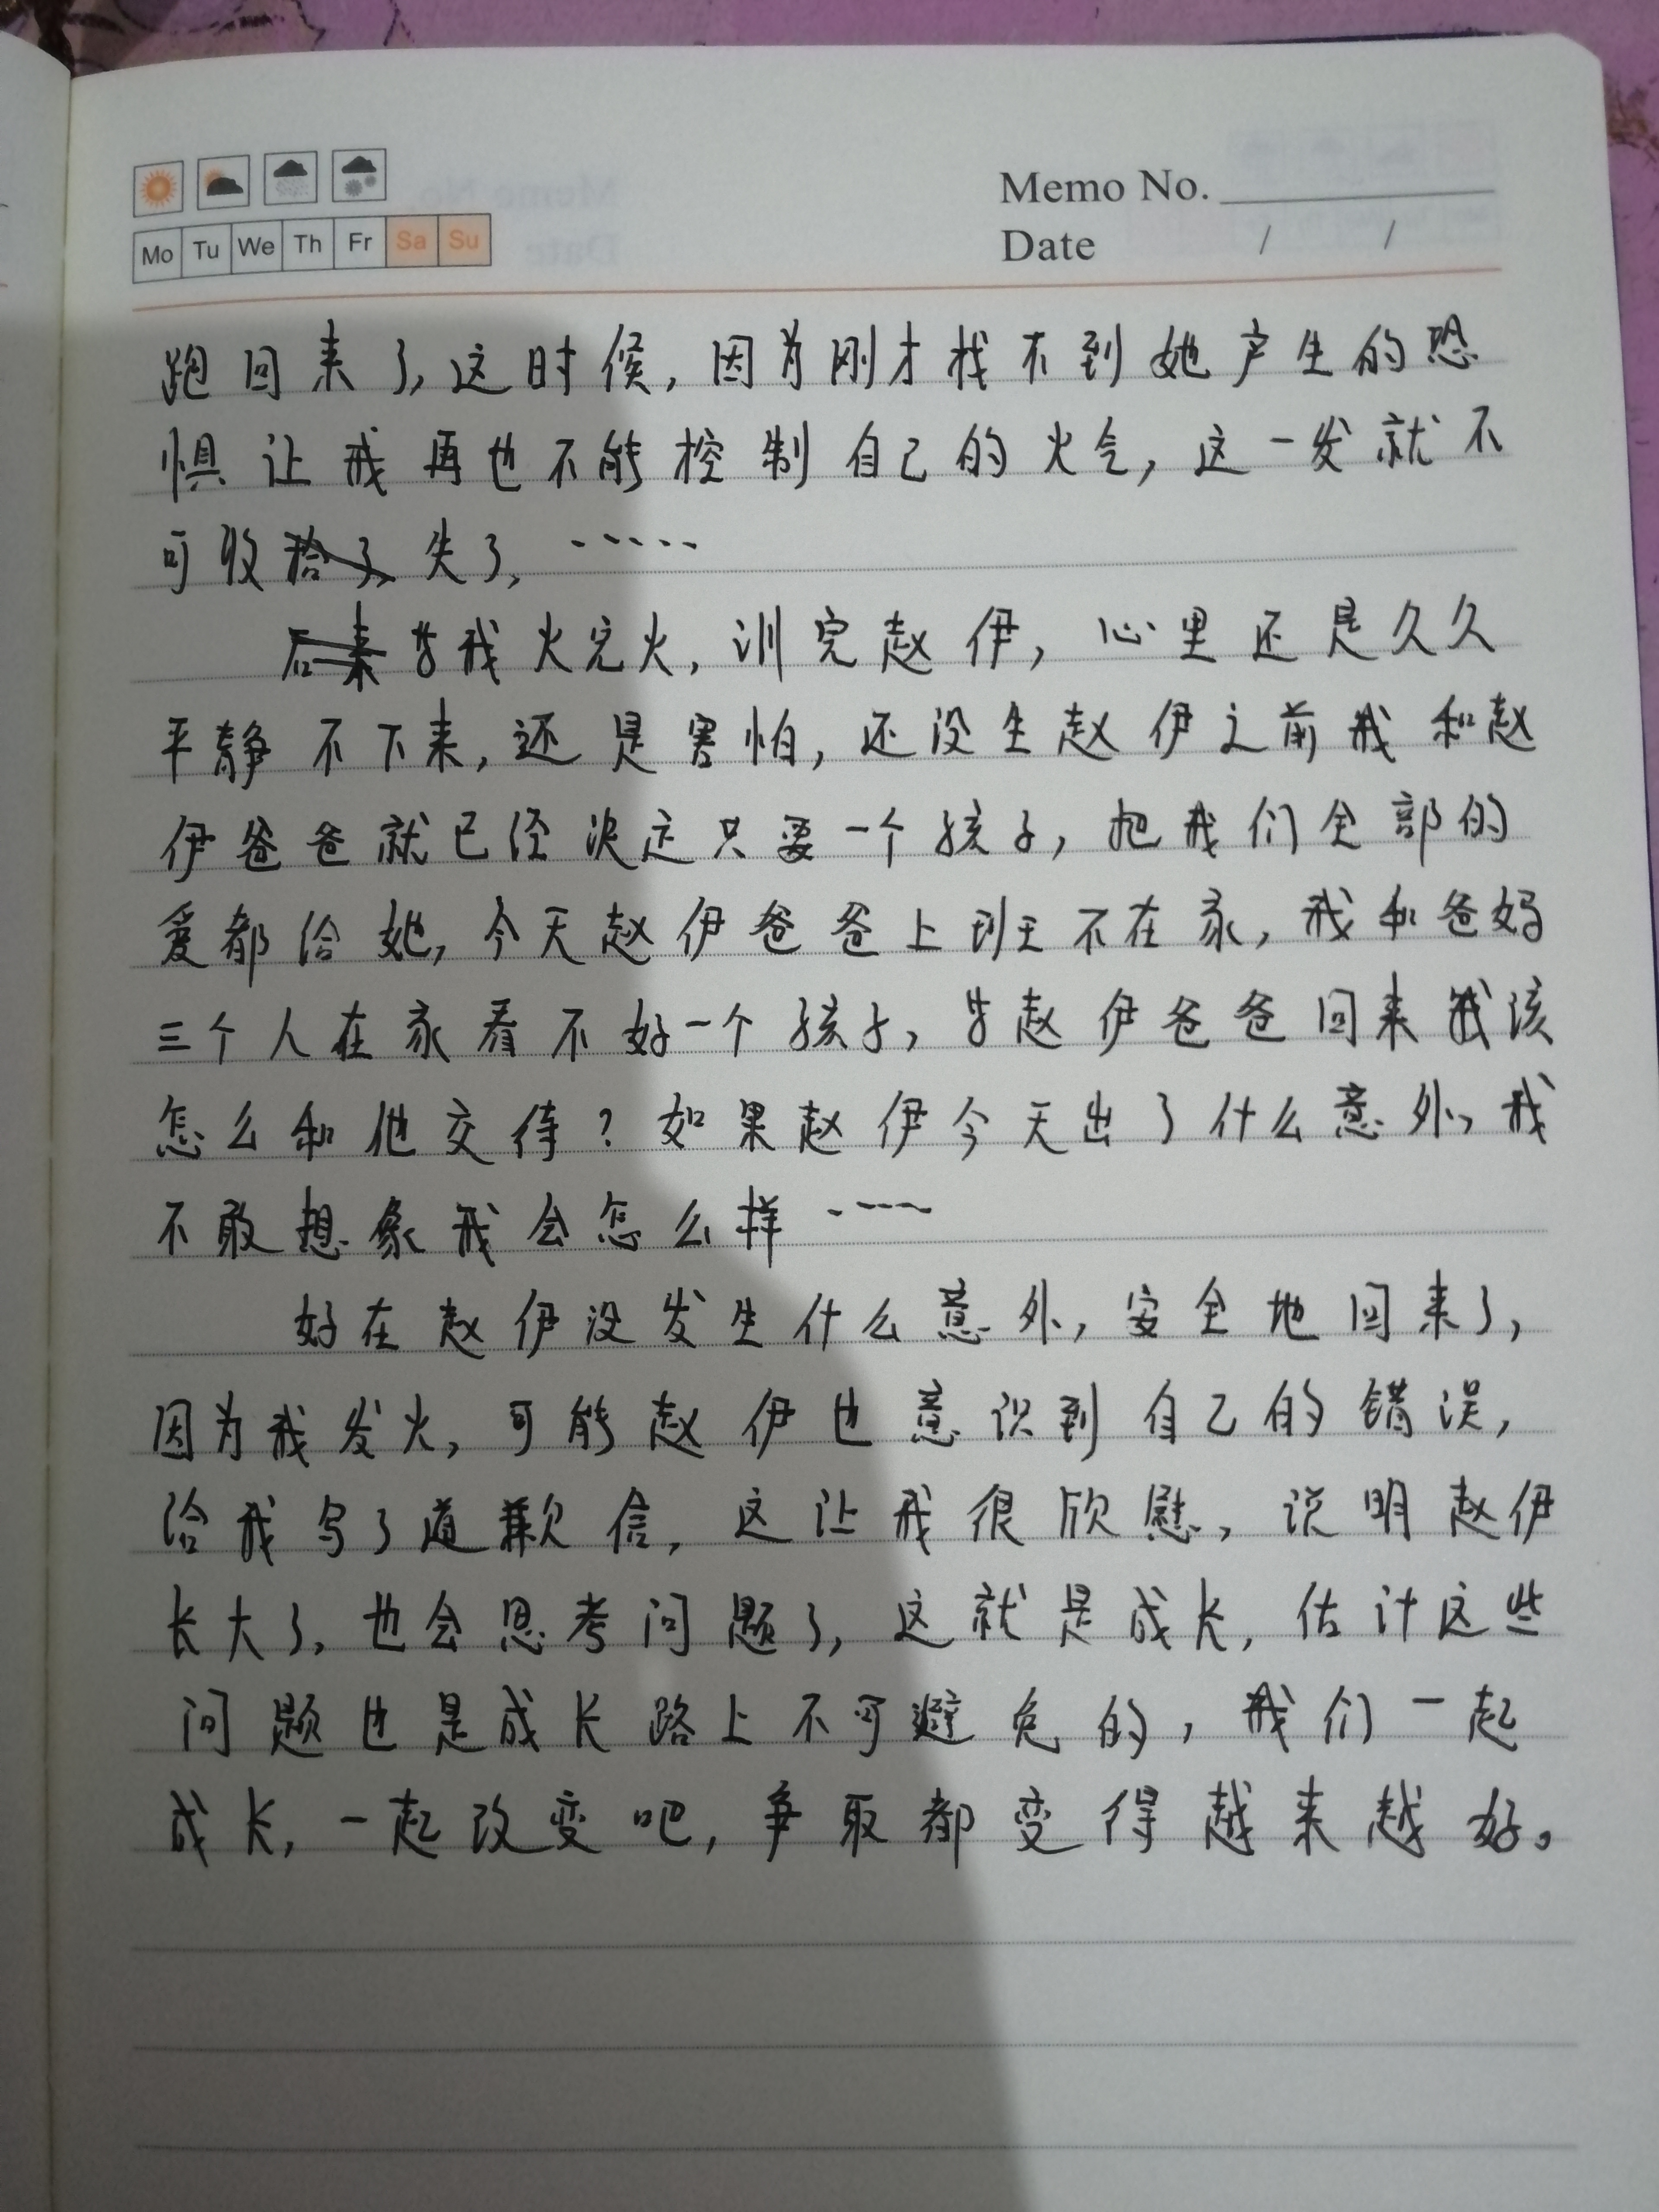 Memo No.
Mo Tu We Th Fr Sa Su
Date / /
跑回来了,这时候,因为刚才找不到她产生的恐
惧让我再也不能控制自己的火气,这一发就不
可收失了,……
我火完火,训完赵伊,心里还是久久
平静不下来,还是害怕,还没生赵伊之前我和赵
伊爸爸就已经决定只要一个孩子,把我们全部的
爱都给她,今天赵伊爸爸上班不在家,我和爸妈
三个人在家看不好一个孩子,等赵伊爸爸回来我该
怎么和他交待?如果赵伊今天出了什么意外,我
不敢想象我会怎么样……
好在赵伊没发生什么意外,安全地回来了,
因为我发火,可能赵伊也意识到自己的错误,
给我写了道歉信,这让我很欣慰,说明赵伊
长大了,也会思考问题了,这就是成长,估计这些
问题也是成长路上不可避免的,我们一起
成长,一起改变吧,争取都变得越来越好。